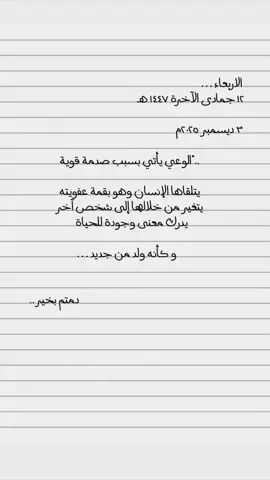 الاربعاء...
١٢ جمادى الآخرة ١٤٤٧ هـ
٣ ديسمبر ٢٠٢٥م
.."الوعي يأتي بسبب صدمة قوية
يتلقاها الإنسان وهو بقمة عفويته
يتغير من خلالها إلى شخص آخر
يدرك معنى وجودة للحياة
و كأنه ولد من جديد...
دمتم بخير..